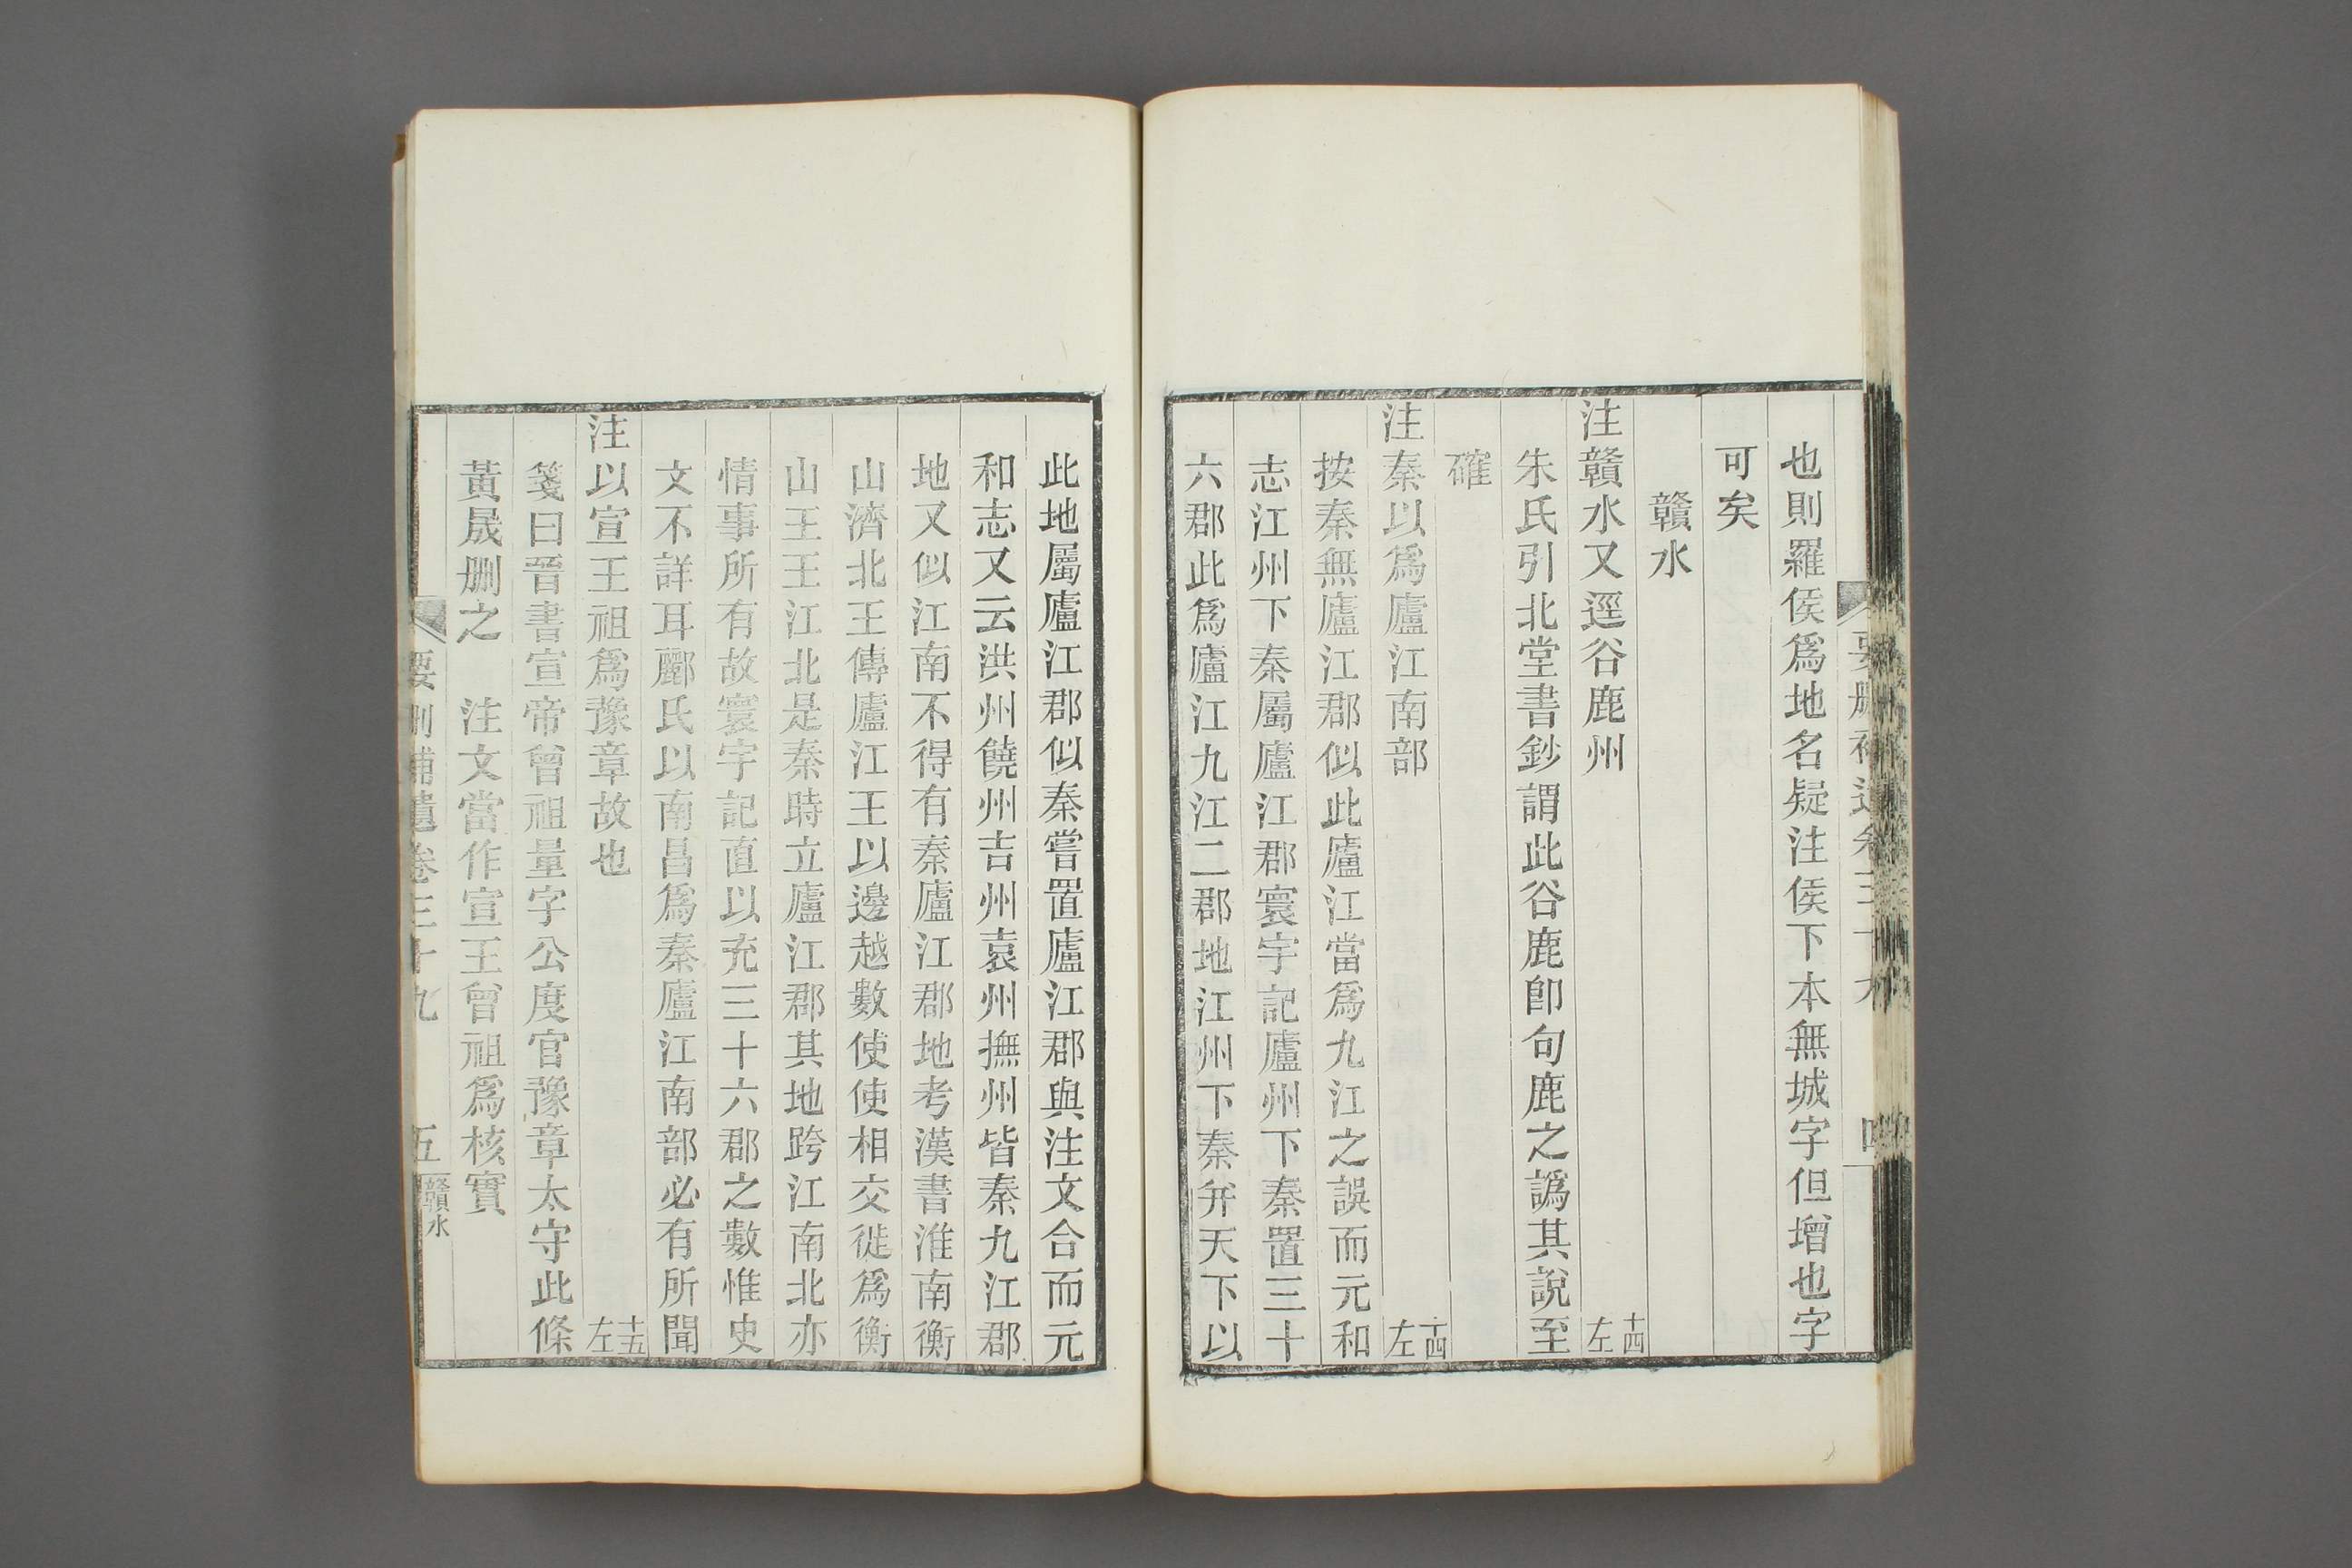 也則羅侯爲地名疑注侯下本無城字但增也字
可矣
贛水
注贛水又逕谷鹿州 十四左
朱氏引北堂書鈔謂此谷鹿卽句鹿之譌其說至
確
注秦以爲廬江南部 十四左
按秦無廬江郡似此廬江當爲九江之誤而元和
志江州下秦屬廬江郡寰宇記廬州下秦置三十
六郡此爲廬江九江二郡地江州下秦幷天下以
此地屬廬江郡似秦嘗置廬江郡與注文合而元
和志又云洪州饒州吉州袁州撫州皆秦九江郡
地又似江南不得有秦廬江郡地考漢書淮南衡
山濟北王傳廬江王以邊越數使使相交徙爲衡
山王王江北是秦時立廬江郡其地跨江南北亦
情事所有故寰宇記直以充三十六郡之數惟史
文不詳耳酈氏以南昌爲秦廬江南部必有所聞
注以宣王祖爲豫章故也 十五左
箋曰晉書宣帝曾祖量字公度官豫章太守此條
黃晟刪之　注文當作宣王曾祖爲核實
要刪補遺卷三十九　五　贛水